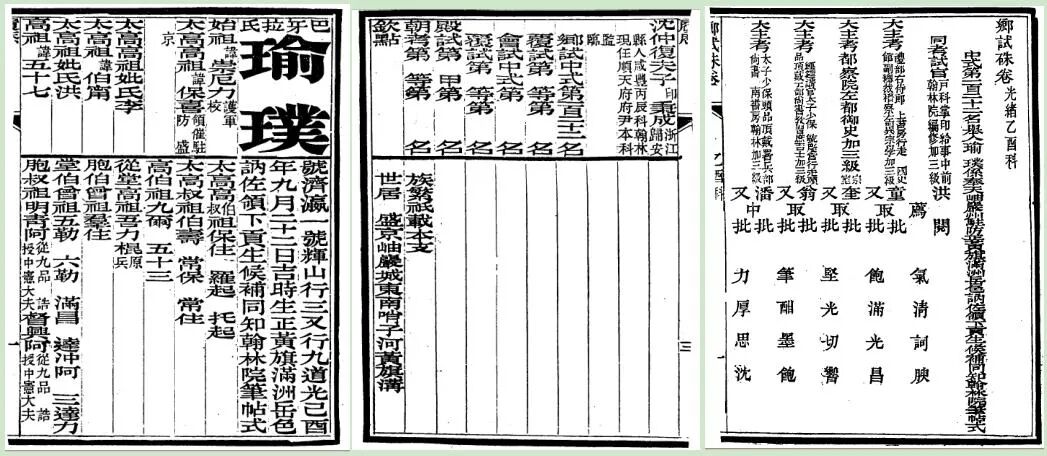 巴牙拉氏
瑜璞
號濟瀛一號輝山行三又行九道光己酉
年九月二十二日吉時生正黃旗滿洲岳色
訥佐領下貢生候補同知翰林院筆帖式
始祖諱崇厄力護軍校
太高高祖諱保喜領催駐防盛京
太高高祖妣氏李
太高祖諱伯甯
太高祖妣氏洪
高祖諱五十七
太高高伯叔祖保住 羅起 托起
太高叔祖伯壽 常保 常住
高伯祖九爾 五十三
從堂高祖吾力棍原兵
胞伯曾祖羣住
堂伯曾祖五勒 六勒 滿昌 達沖阿 三達力
胞叔祖明青阿從九品誥授中憲大夫督興阿從九品誥授中憲大夫
一
沈仲復夫子印秉成浙江歸安縣人咸豐丙辰科翰林現任順天府府尹本科監臨
鄉試中式第 名
覆試第 等第 名
會試中式第 名
覆試第 等第 名
殿試第 甲第 名
朝考第 等第 名
欽點
族繁祗載本支
世居 盛京岫巖城東南哨子河黃旗溝
三
鄉試硃卷光緒乙酉科
中式第二百二十二名舉人瑜璞係奉天岫巖州駐防正黃旗滿洲岳色訥佐領下貢生候補同知翰林院筆帖式
同考試官戶科掌印給事中前翰林院編修加三級洪 閱
薦批 氣清詞腴
大主考 童批
又批取 飽滿光昌
大主考都察院左都御史加三級 奎批
又批取 堅光切響
大主考 翁批
又批取 筆酣墨飽
大主考太子少保頭品頂戴兵部尚書南書房翰林加三級潘批
又批中 力厚思沈
鄉試硃卷 乙酉科
一